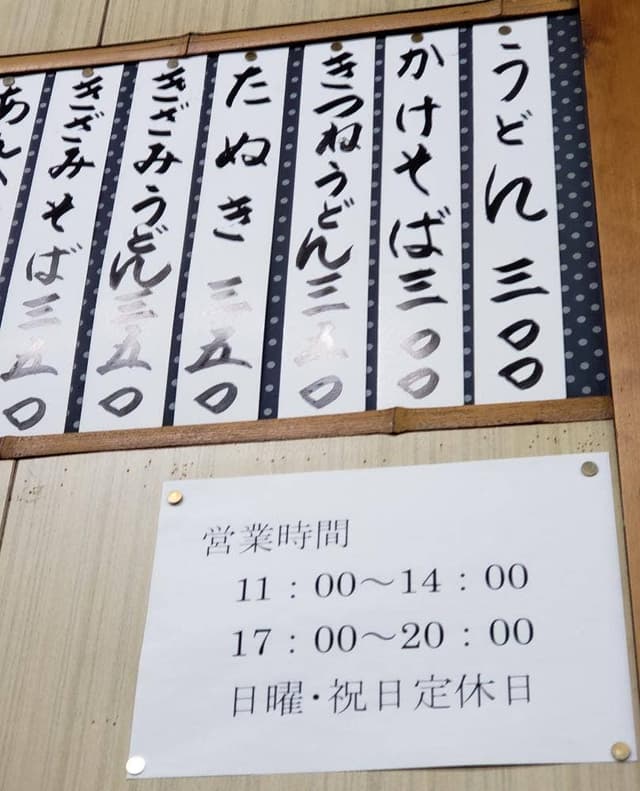 うどん 三〇〇
かけそば 三〇〇
きつねうどん 三五〇
たぬき 三五〇
きざみうどん 三五〇
きざみそば 三五〇
あん
営業時間
11：00～14：00
17：00～20：00
日曜・祝日定休日